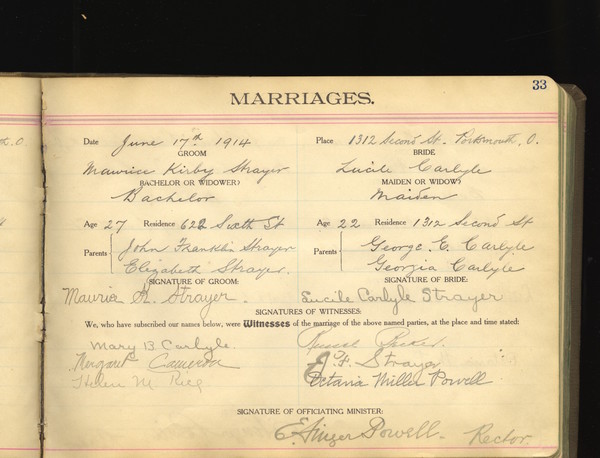 33
MARRIAGES.
Date June 17th 1914 Place 1312 Second St. Portsmouth, O.
GROOM BRIDE
Maurice Kirby Strayer Lucile Carlyle
BACHELOR OR WIDOWER? MAIDEN OR WIDOW?
Bachelor Maiden
Age 27 Residence 622 Sixth St Age 22 Residence 1312 Second St
Parents John Franklin Strayer Parents George E. Carlyle
Elizabeth Strayer. Georgia Carlyle
SIGNATURE OF GROOM: SIGNATURE OF BRIDE:
Maurice K. Strayer. Lucile Carlyle Strayer
SIGNATURES OF WITNESSES:
We, who have subscribed our names below, were Witnesses of the marriage of the above named parties, at the place and time stated:
Mary B. Carlyle.
Margaret Cameron J. F. Strayer
Helen M. Octavia Miller Powell
SIGNATURE OF OFFICIATING MINISTER:
E. Ainger Powell. Rector.